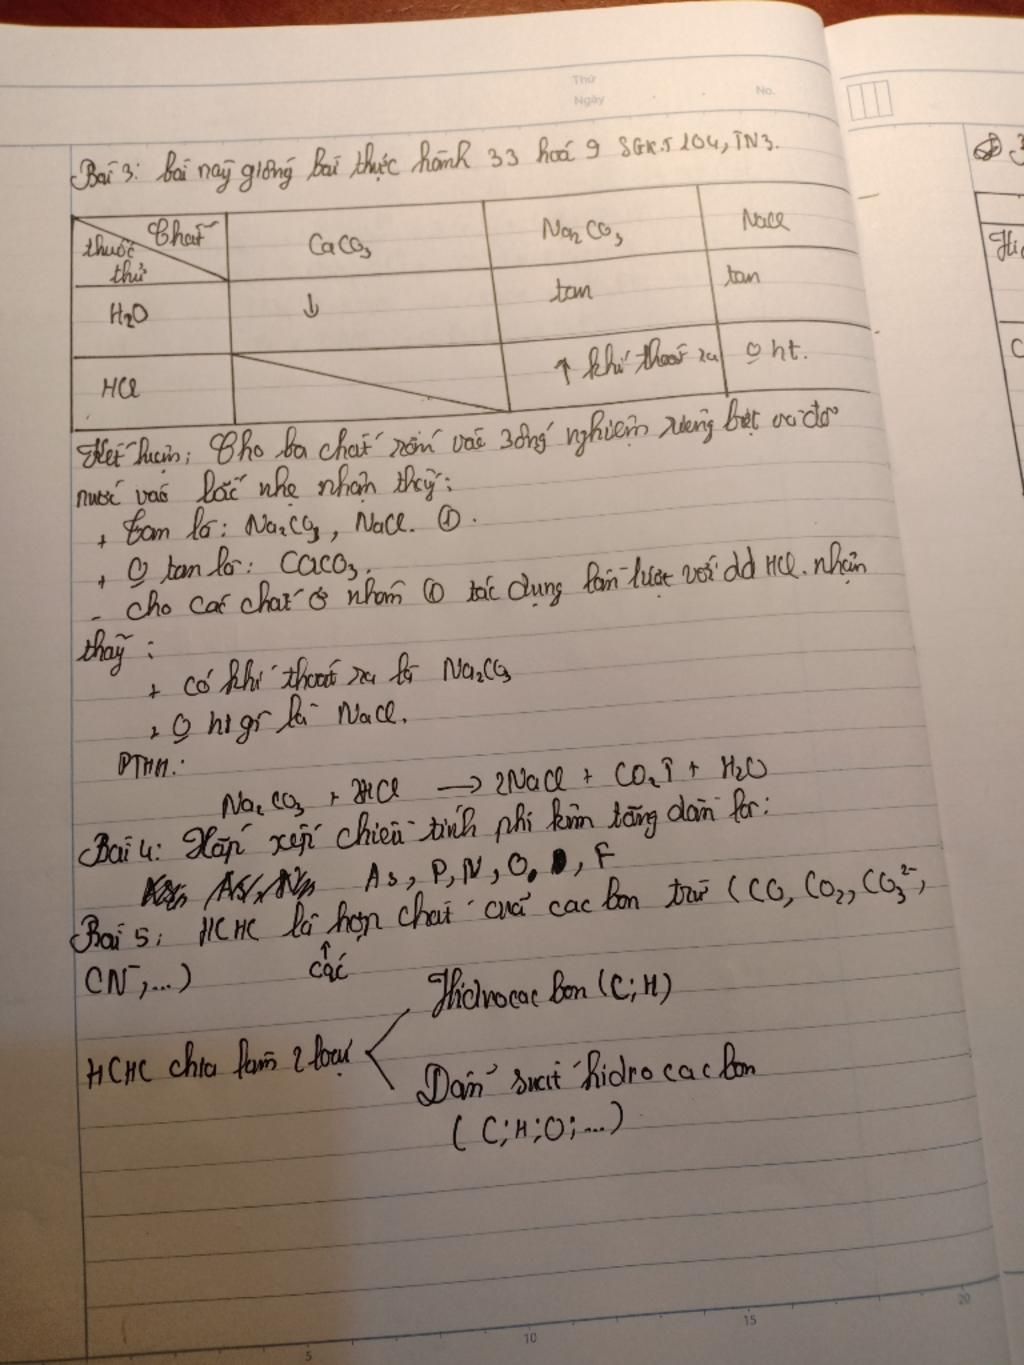 Thứ
Ngày
No.
Bài 3: bài này giống bài thực hành 33 hoá 9 SGK.T 104, TN3.
Chất
thuốc
thử
CaCO₃
Na₂CO₃
NaCl
H₂O
↓
tan
tan
HCl
↑ khí thoát ra
O ht.
Kết luận: Cho ba chất rắn vào 3 ống nghiệm riêng biệt và đổ
nước vào lắc nhẹ nhận thấy:
+ tan là: Na₂CO₃, NaCl. ①.
+ O tan là: CaCO₃.
- cho các chất ở nhóm ① tác dụng lần lượt với dd HCl. nhận
thấy:
+ có khí thoát ra là Na₂CO₃
+ O ht gì là NaCl.
PTHH:
Na₂CO₃ + 2HCl → 2NaCl + CO₂↑ + H₂O
Bài 4: Sắp xếp chiều tính phi kim tăng dần là:
As, P, N, O, F
Bài 5: HCHC là hợp chất của các bon trừ (CO, CO₂, CO₃²⁻,
các
CN⁻,...)
Hidrocacbon (C;H)
HCHC chia làm 2 loại
Dẫn suất hidrocacbon
(C;H;O;...)
5
10
15
20